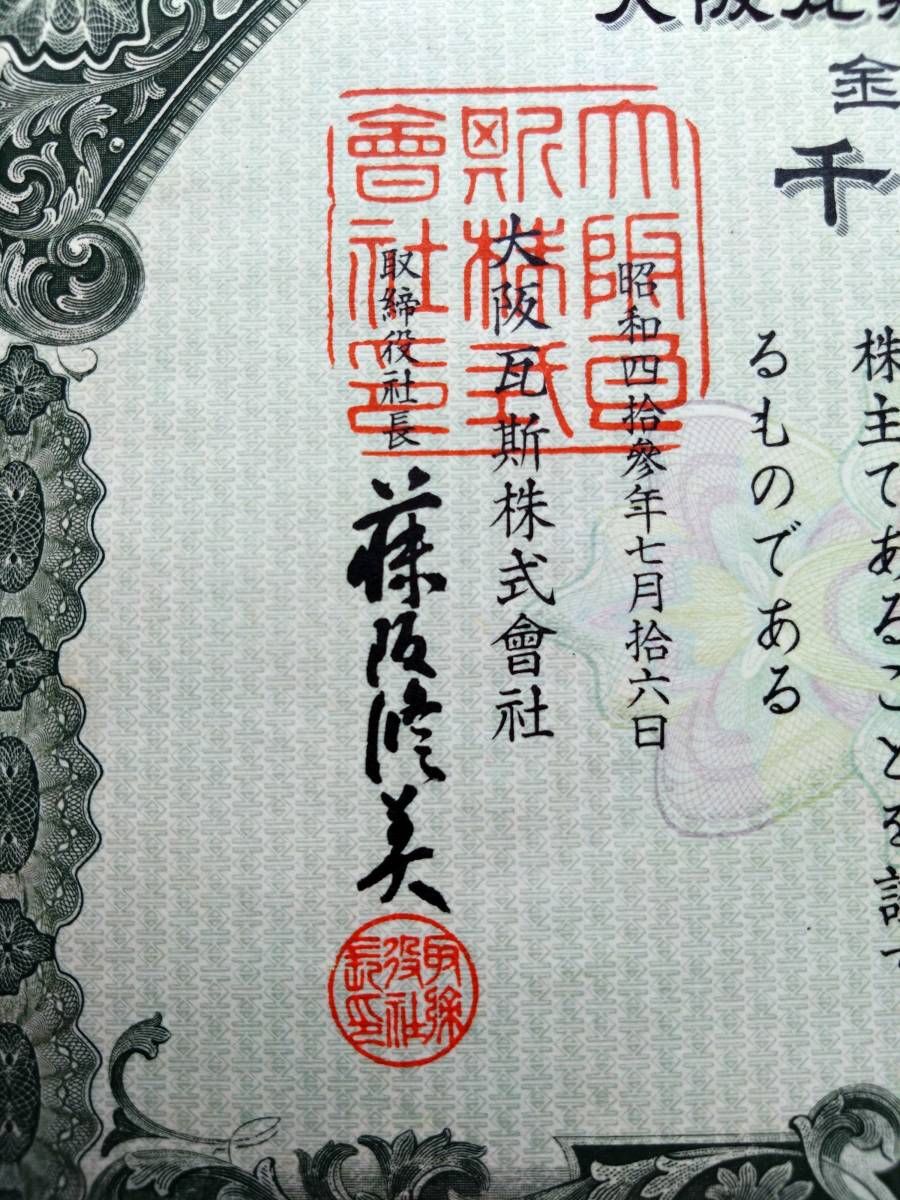 大阪瓦斯
金
千
株主であることを証す
るものである
昭和四拾參年七月拾六日
大阪瓦斯株式會社
取締役社長
藤坂修美
大阪瓦
斯株式
會社印
取締
役社
長印